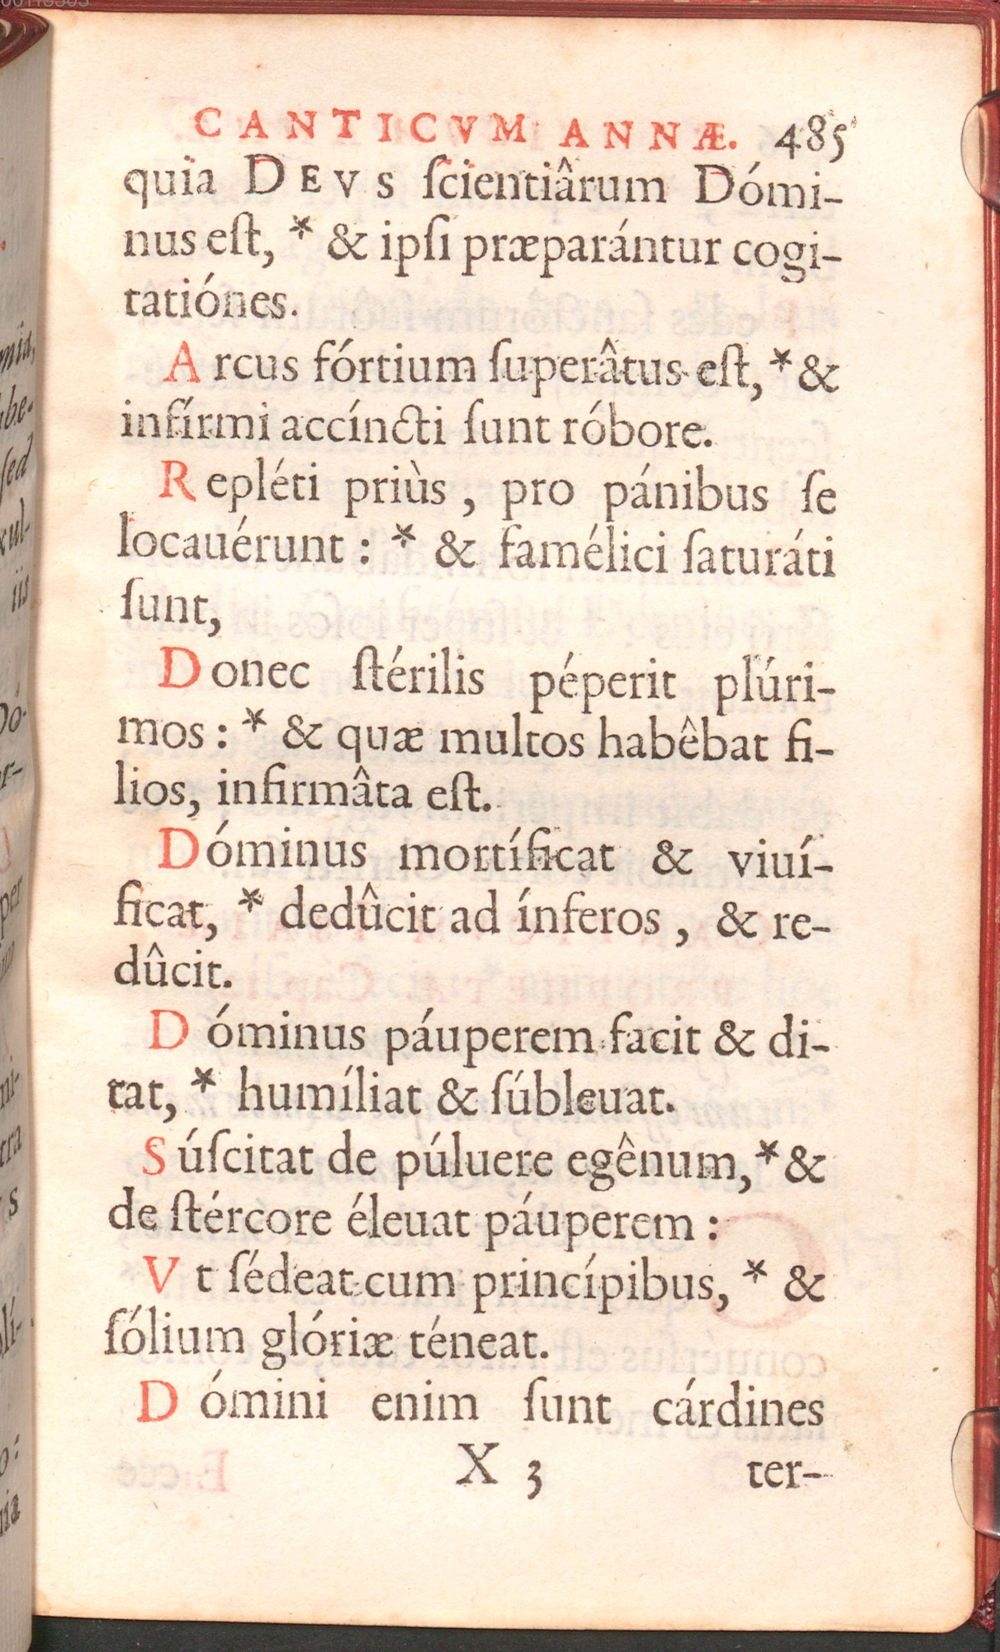 CANTICVM ANNÆ. 485
quia DEVS ſcientiârum Dómi-
nus eſt, * & ipſi præparántur cogi-
tatiónes.
Arcus fórtium ſuperâtus eſt, * &
infírmi accíncti ſunt róbore.
Repléti priùs, pro pánibus ſe
locauérunt : * & famélici ſaturáti
ſunt,
Donec ſtérilis péperit plúri-
mos : * & quæ multos habêbat fi-
lios, infirmâta eſt.
Dóminus mortíficat & viuí-
ficat, * dedûcit ad ínferos, & re-
dûcit.
Dóminus páuperem facit & di-
tat, * humíliat & ſúbleuat.
Súſcitat de púluere egênum, * &
de ſtércore éleuat páuperem :
Vt ſédeat cum princípibus, * &
ſólium glóriæ téneat.
Dómini enim ſunt cárdines
X 3 ter-